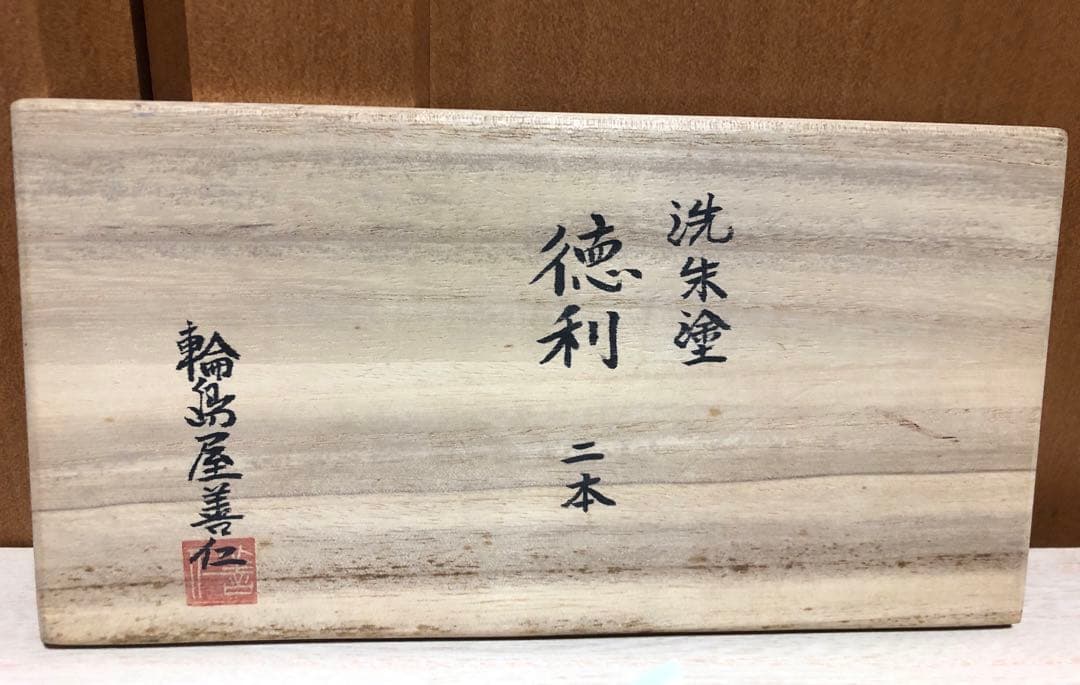 洗朱塗
徳利 二本
輪島屋善仁